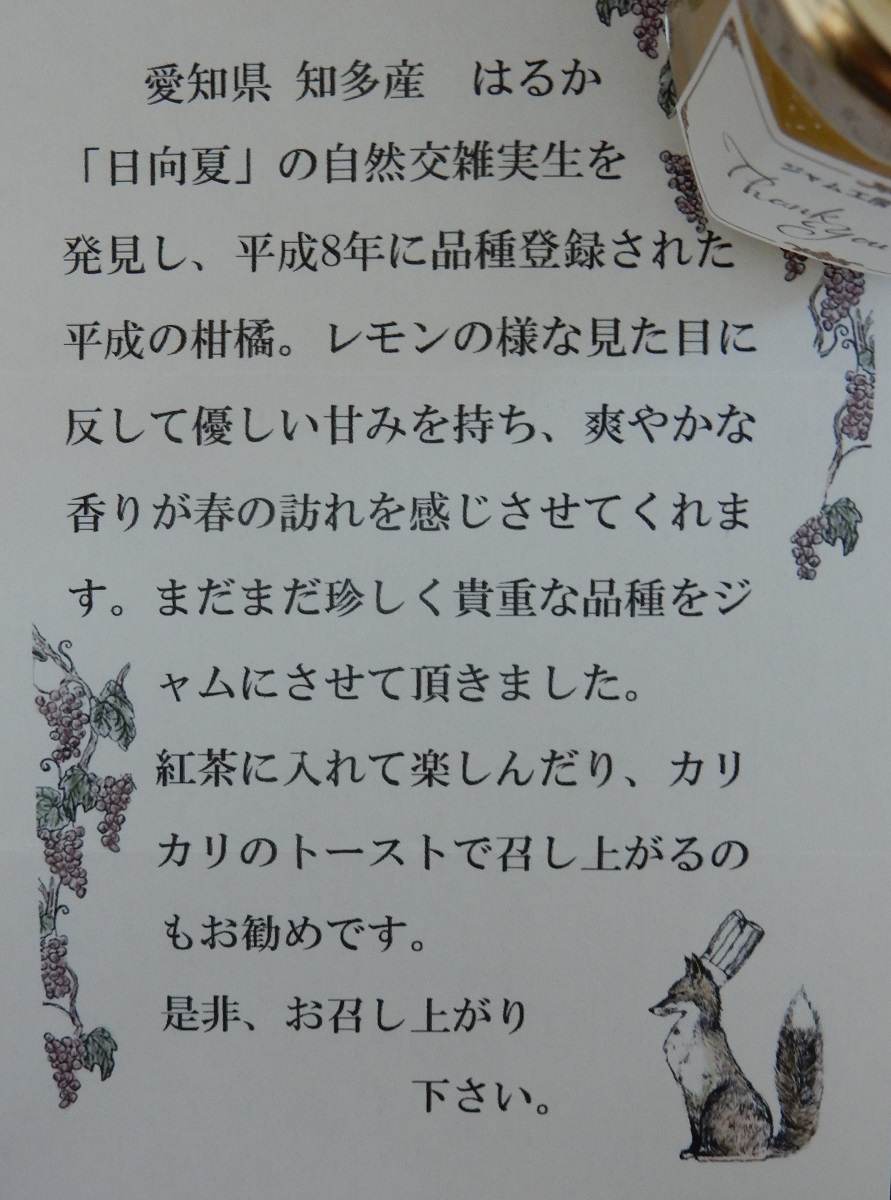 愛知県 知多産　はるか
「日向夏」の自然交雑実生を
発見し、平成8年に品種登録された
平成の柑橘。レモンの様な見た目に
反して優しい甘みを持ち、爽やかな
香りが春の訪れを感じさせてくれま
す。まだまだ珍しく貴重な品種をジ
ャムにさせて頂きました。
紅茶に入れて楽しんだり、カリ
カリのトーストで召し上がるの
もお勧めです。
是非、お召し上がり
下さい。
ジャム工房
Thank you